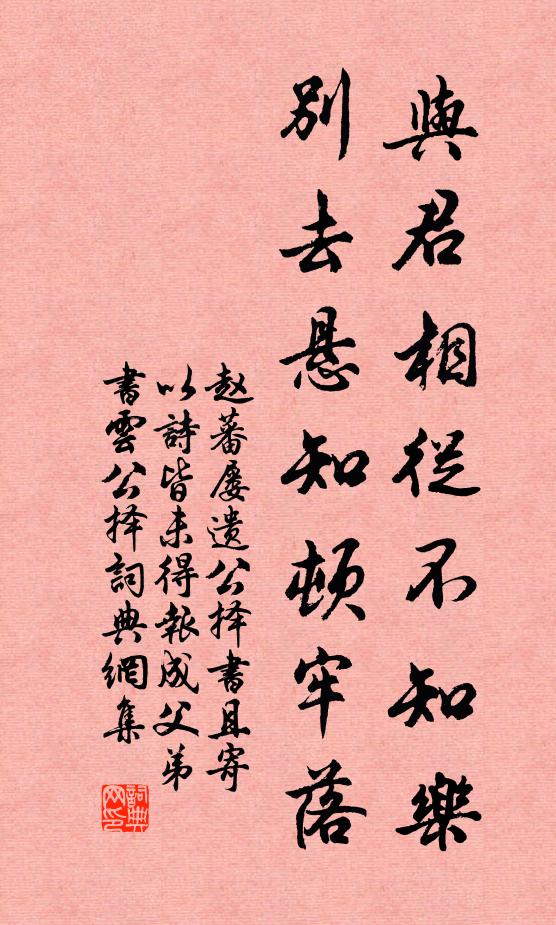 與君相從不知樂
別去悬知頓牢落
赵蕃屡遗公择書且寄
以詩皆未得報成父弟
書雲公择詞典網集
詞典网印